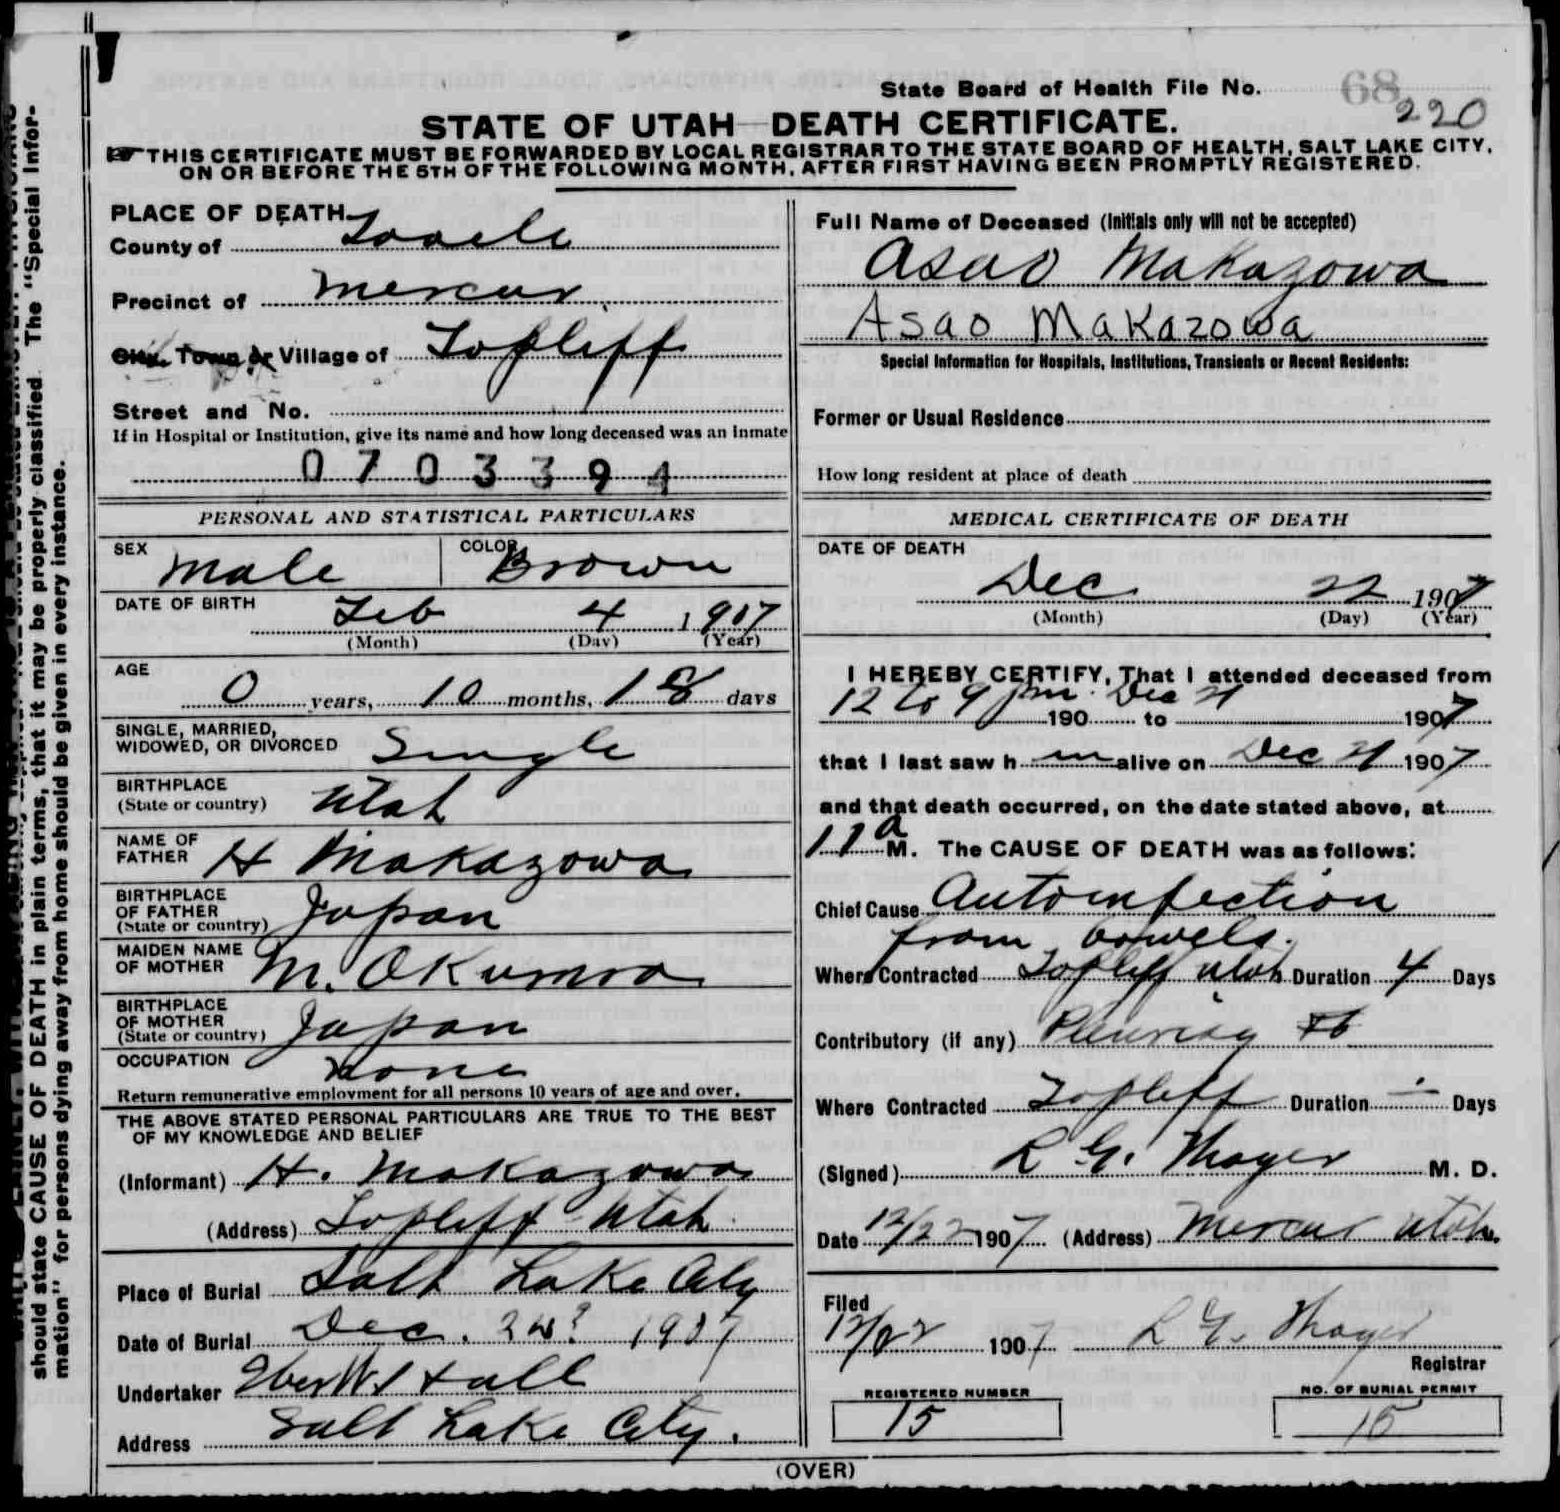 State Board of Health File No. 68
220
STATE OF UTAH—DEATH CERTIFICATE.
☞ THIS CERTIFICATE MUST BE FORWARDED BY LOCAL REGISTRAR TO THE STATE BOARD OF HEALTH, SALT LAKE CITY,
ON OR BEFORE THE 5TH OF THE FOLLOWING MONTH, AFTER FIRST HAVING BEEN PROMPTLY REGISTERED.
PLACE OF DEATH
County of Tooele
Precinct of Mercur
City, Town or Village of Topliff
Street and No.
If in Hospital or Institution, give its name and how long deceased was an inmate
0703394
PERSONAL AND STATISTICAL PARTICULARS
SEX Male COLOR Brown
DATE OF BIRTH Feb 4 1907
(Month) (Day) (Year)
AGE
0 years, 10 months, 18 days
SINGLE, MARRIED,
WIDOWED, OR DIVORCED Single
BIRTHPLACE
(State or country) Utah
NAME OF
FATHER H Makazowa
BIRTHPLACE
OF FATHER
(State or country) Japan
MAIDEN NAME
OF MOTHER M. Okumra
BIRTHPLACE
OF MOTHER
(State or country) Japan
OCCUPATION none
Return remunerative employment for all persons 10 years of age and over.
THE ABOVE STATED PERSONAL PARTICULARS ARE TRUE TO THE BEST
OF MY KNOWLEDGE AND BELIEF
(Informant) H. Makazowa
(Address) Topliff Utah
Place of Burial Salt Lake City
Date of Burial Dec. 1907
Undertaker Eber W. Hall
Address Salt Lake City.
Full Name of Deceased (Initials only will not be accepted)
Asao Makazowa
Asao Makazowa
Special Information for Hospitals, Institutions, Transients or Recent Residents:
Former or Usual Residence
How long resident at place of death
MEDICAL CERTIFICATE OF DEATH
DATE OF DEATH
Dec 22 1907
(Month) (Day) (Year)
I HEREBY CERTIFY, That I attended deceased from
12 to 9 pm 190 to Dec 21 1907
that I last saw h im alive on Dec 21 1907
and that death occurred, on the date stated above, at
11 a M. The CAUSE OF DEATH was as follows:
Chief Cause Autoinfection
from bowels.
Where Contracted Topliff Utah Duration 4 Days
Contributory (if any) Pleurisy
Where Contracted Topliff Duration - Days
(Signed) L G. Thayer M. D.
Date 12/22 1907 (Address) Mercur Utah.
Filed
12/22 1907 L G. Thayer
Registrar
REGISTERED NUMBER
15
NO. OF BURIAL PERMIT
15
(OVER)
should state CAUSE OF DEATH in plain terms, that it may be properly classified. The "Special Infor-
mation" for persons dying away from home should be given in every instance.